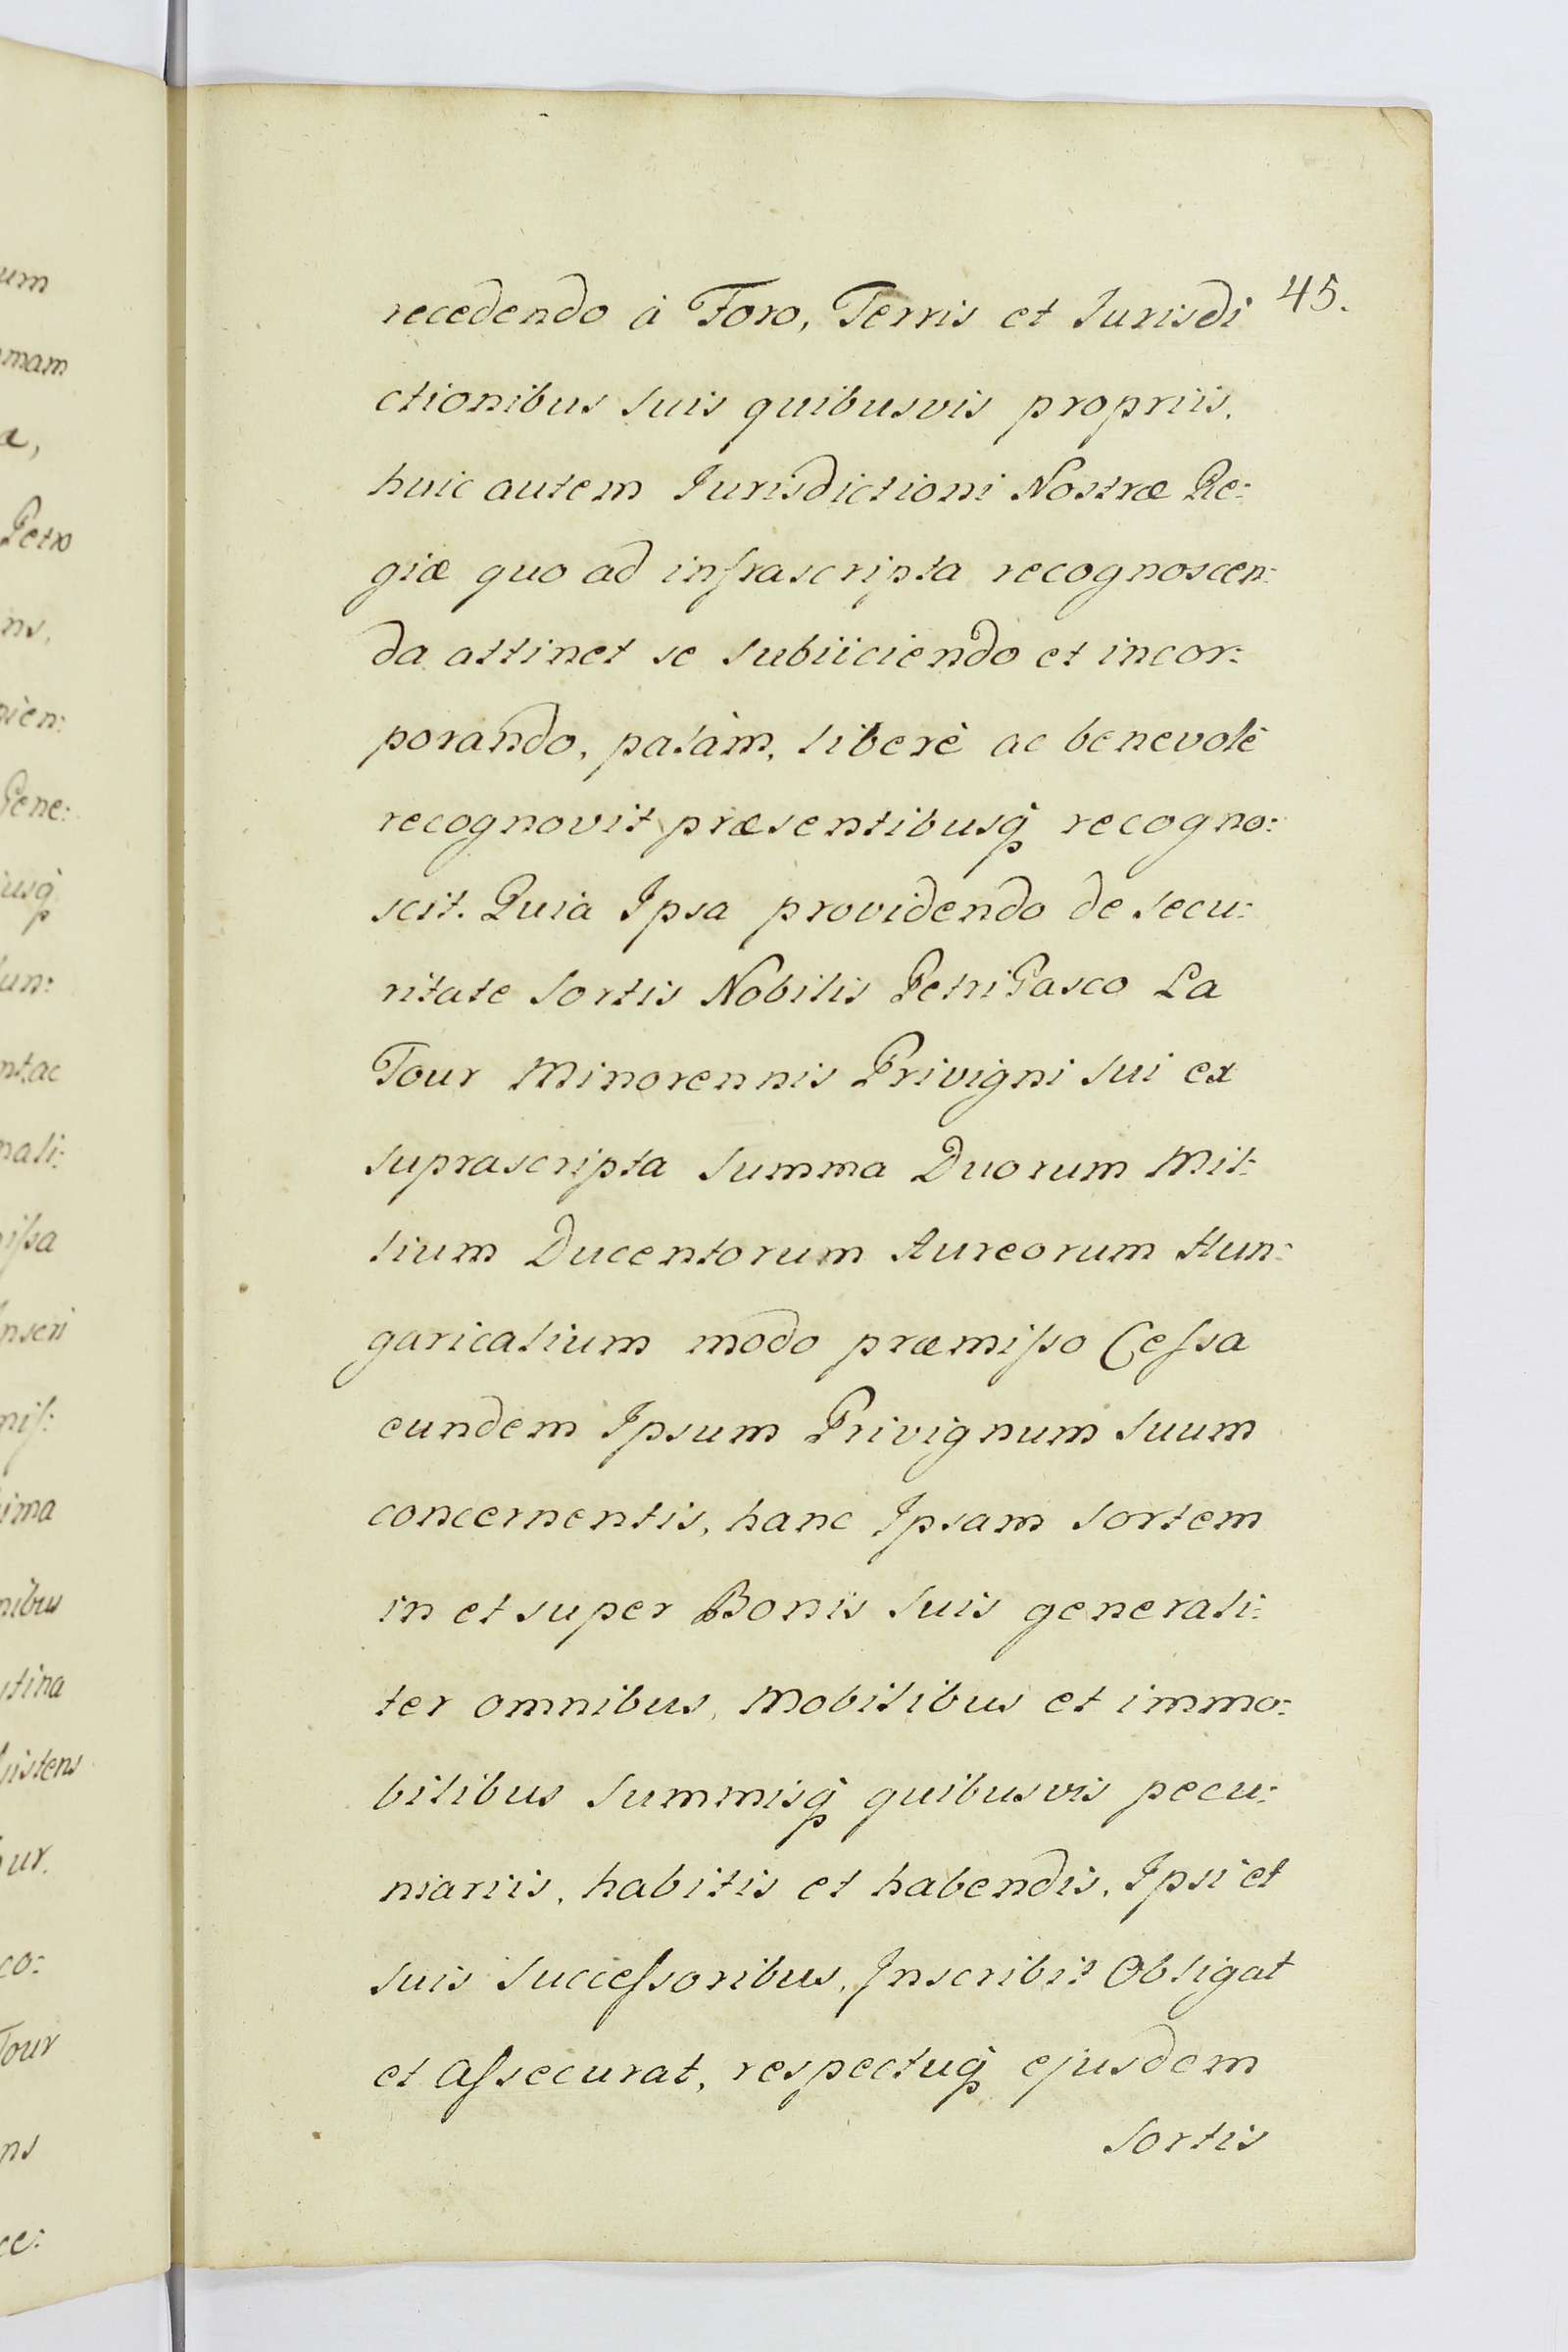 45.
recedendo à Foro, Terris et Jurisdi
ctionibus suis quibusvis propriis,
huic autem Jurisdictioni Nostræ Re:
giæ quo ad infrascripta recognoscen:
da attinet se subiiciendo et incor:
porando, palàm, liberè ac benevolè
recognovit præsentibusq̃ recogno:
scit. Quia Ipsa providendo de secu:
ritate sortis Nobilis Petri Gasco La
Tour Minorennis Privigni sui ex
suprascripta summa Duorum Mil:
lium Ducentorum Aureorum Hun:
garicalium modo præmiſso Ceſsa
eundem Ipsum Privignum suum
concernentis, hanc Ipsam sortem
in et super Bonis suis generali:
ter omnibus, Mobilibus et immo:
bilibus Summisq̃ quibusvis pecu:
niariis, habitis et habendis, Ipsi et
suis Succeſsoribus, Inscribit Obligat
et Aſsecurat, respectuq̃ ejusdem
sortis
um
mam
a,
Petro
ns,
nien:
Gene:
usq̃
un:
nt, ac
nali:
iſsa
nscri
miſ:
ima
nibus
stina
istens
ur.
co:
Tour
ns
ce: